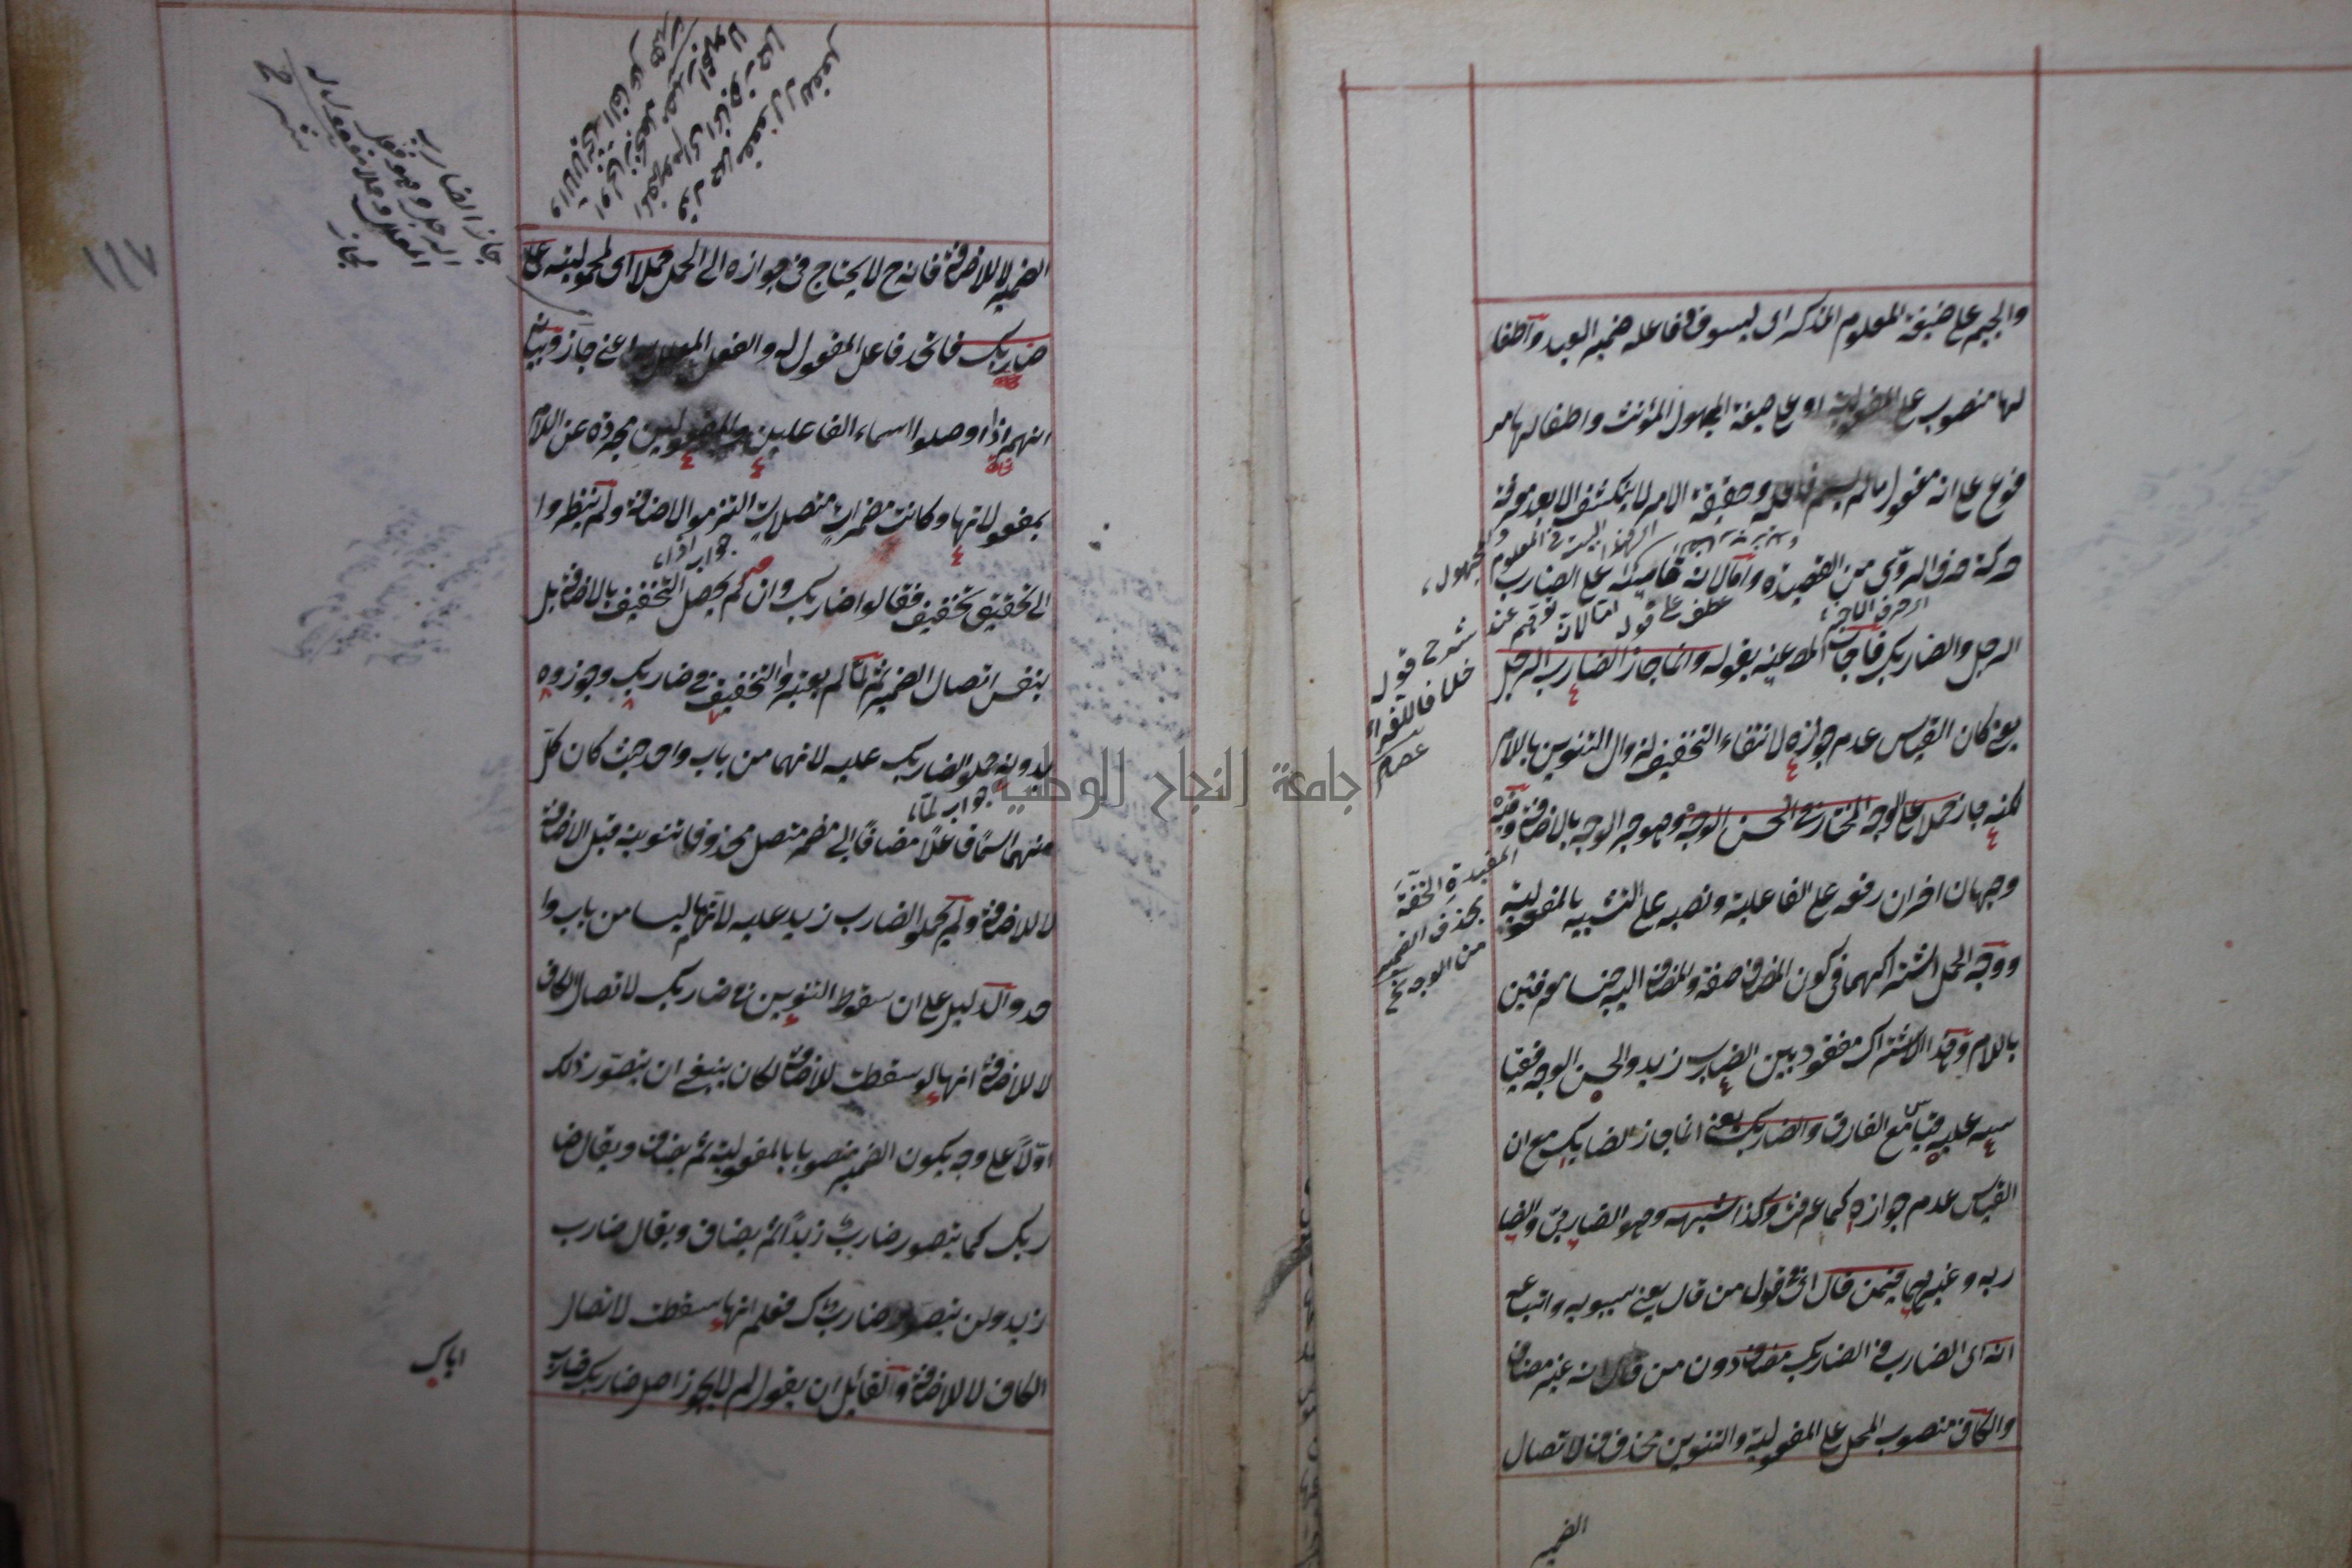 والجيم على صيغة المعلوم المذكر اى ليسوق فاعله ضمير العبد واطفا
لها منصوب على المفعولية او على صيغة المجهول المؤنث واطفالها مر
فوع على انه مفعول ما لم يسم فاعله وحقيقة الامر لا ينكشف الا بعد معرفة
حركة حرف الروى من القصيدة واما لانه قاسه على الضارب
الرجل والضاربك فاجاب المص عنه بقوله وانما جاز الضارب الرجل
يعنى كان القياس عدم جوازه لانتفاء التخفيف لزوال التنوين باللام
لكنه جاز حملا على الوجه المختار فى الحسن الوجه وهو جر الوجه بالاضافة وفيه
وجهان اخران رفعه على الفاعلية ونصبه على التشبيه بالمفعولية
ووجه الحمل اشتراكهما فى كون المضاف صفة والمضاف اليه جنسا معرفين
باللام وهذا الاشتراك مفقود بين الضارب زيد والحسن الوجه فقيا
سه عليه قياس مع الفارق والضاربك يعنى انما جاز الضاربك مع ان
القياس عدم جوازه كما عرفت وكذا شبهه وهو الضاربى والضا
ربه وغيرهما فيمن قال اى فى قول من قال يعنى سيبويه واتباعه
انه اى الضارب فى الضاربك مضاف دون من قال انه غير مضاف
والكاف منصوب المحل على المفعولية والتنوين محذوف لاتصال
الضمير
شرح قوله
خلافا للفراء
عصام
المفيدة الخفة
بحذف الضمير
من الوجه
عطف على قوله اما لانه توهم عند
جامعة النجاح الوطنية
الضمير لا للاضافة فانه ح لا يحتاج فى جوازه الى الحمل حملا اى لمحموليته على
ضاربك فاتحد فاعل المفعول له والفعل المعلل به اعنى جاز وبيانه
انهم اذا وصلوا اسماء الفاعلين والمفعولين مجردة عن اللام
بمفعولاتها وكانت مضمرات متصلات التزموا الاضافة ولم ينظروا
جواب اذا
الى تحقيق تخفيف فقالوا ضاربك وان لم يحصل التخفيف بالاضافة بل
بنفس اتصال الضمير ثم لما لم يعتبروا التخفيف فى ضاربك وجوزوه
بدونه حملوا الضاربك عليه لانهما من باب واحد حيث كان كل
جواب لما
منهما اسما فاعلا مضافا الى مضمر متصل محذوفا تنوينه قبل الاضافة
لا للاضافة ولم يحملوا الضارب زيد عليه لانهما ليسا من باب وا
حد والدليل على ان سقوط التنوين فى ضاربك لاتصال الكاف
لا للاضافة انها لو سقطت للاضافة لكان ينبغى ان يتصور ذلك
اولا على وجه يكون الضمير منصوبا بالمفعولية ثم يضاف ويقال ضا
ربك كما يتصور ضارب زيدا ثم يضاف ويقال ضارب
زيد ولن يتصور ضاربنك فعلم انها سقطت لاتصال
الكاف لا للاضافة ولقائل ان يقول لم لا يجوز اصل ضاربك ضارب
اياك
جاز الضارب
الرجل وهو فعل
المعلل وحملا مفعول له
لجاز
١١٧